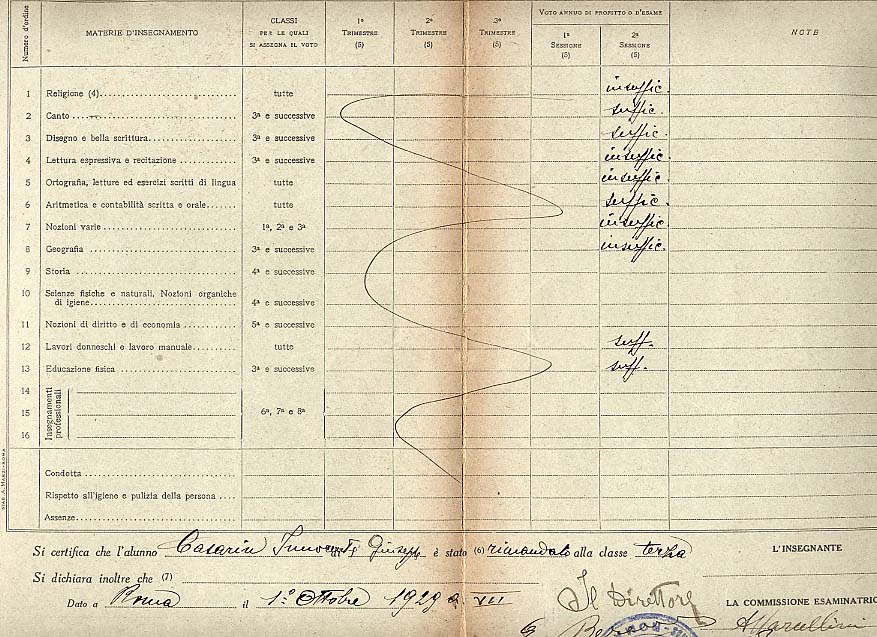 Numero d'ordine
MATERIE D'INSEGNAMENTO
CLASSI
PER LE QUALI
SI ASSEGNA IL VOTO
1º
TRIMESTRE
(5)
2º
TRIMESTRE
(5)
3º
TRIMESTRE
(5)
VOTO ANNUO DI PROFITTO O D'ESAME
1ª
SESSIONE
(5)
2ª
SESSIONE
(5)
NOTE
1 Religione (4) tutte insuffic.
2 Canto 3ª e successive suffic.
3 Disegno e bella scrittura 3ª e successive suffic.
4 Lettura espressiva e recitazione 3ª e successive insuffic.
5 Ortografia, letture ed esercizi scritti di lingua tutte insuffic.
6 Aritmetica e contabilità scritta e orale tutte suffic.
7 Nozioni varie 1ª, 2ª e 3ª insuffic.
8 Geografia 3ª e successive insuffic.
9 Storia 4ª e successive
10 Scienze fisiche e naturali. Nozioni organiche
di igiene 4ª e successive
11 Nozioni di diritto e di economia 5ª e successive
12 Lavori donneschi e lavoro manuale tutte suff.
13 Educazione fisica 3ª e successive suff.
14
Insegnamenti professionali
15 6ª, 7ª e 8ª
16
Condotta
Rispetto all'igiene e pulizia della persona
Assenze
Si certifica che l'alunno Casarin di Giuseppe è stato (6) rimandato alla classe terza
L'INSEGNANTE
Si dichiara inoltre che (7)
Dato a Roma il 1º Ottobre 1929 a. VII
Il Direttore
LA COMMISSIONE ESAMINATRIC